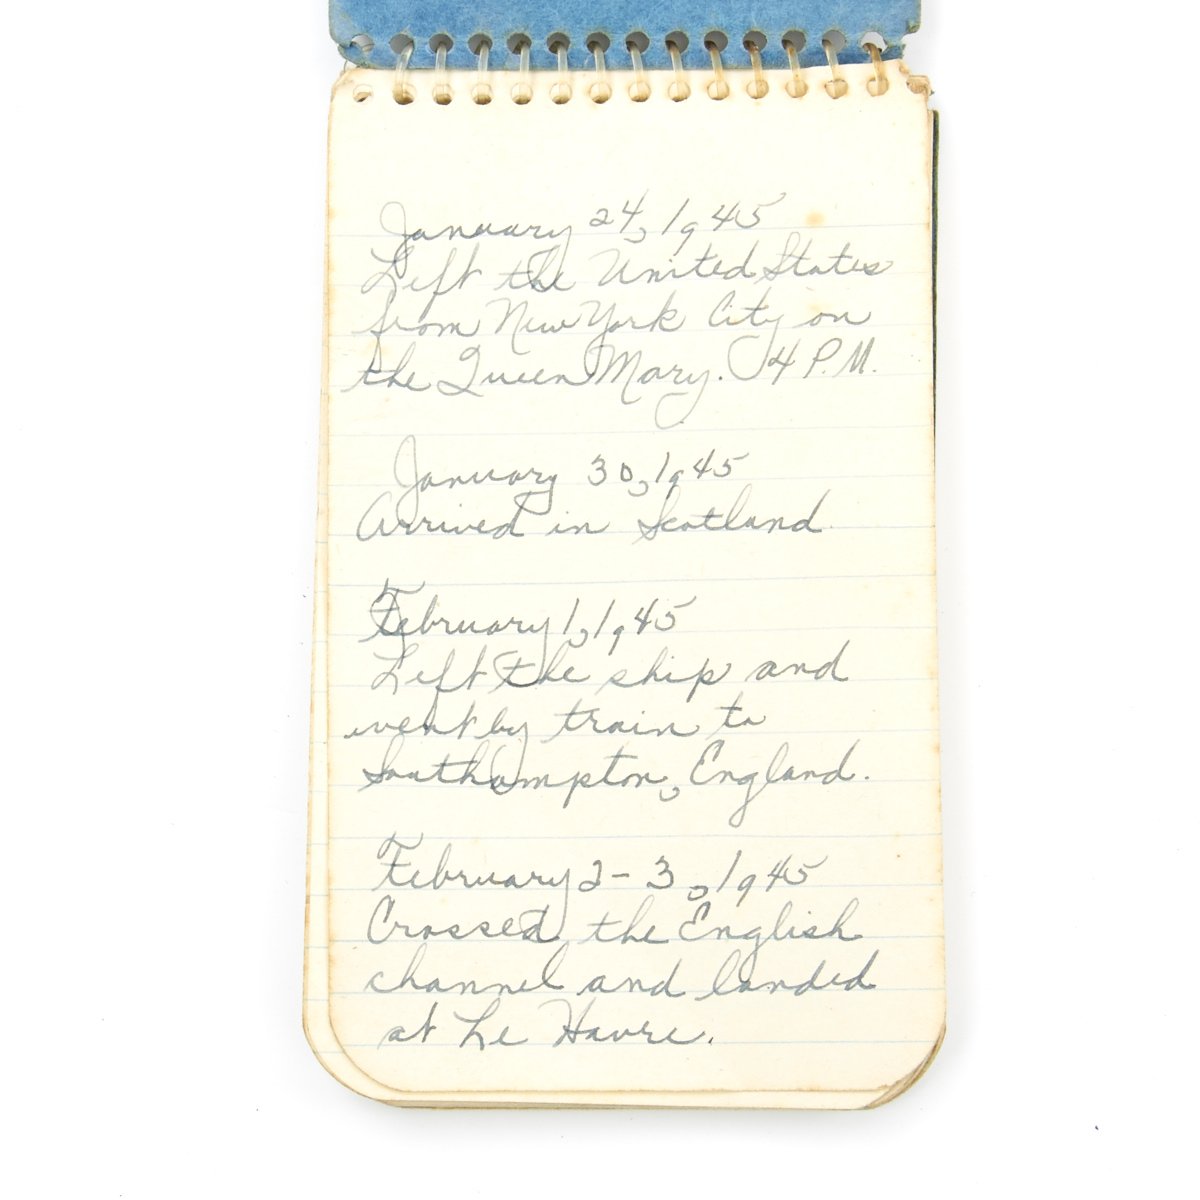 January 24, 1945
Left the United States
from New York City on
the Queen Mary. 4 P.M.
January 30, 1945
Arrived in Scotland
February 1, 1945
Left the ship and
went by train to
Southampton, England.
February 2-3, 1945
Crossed the English
channel and landed
at Le Havre.